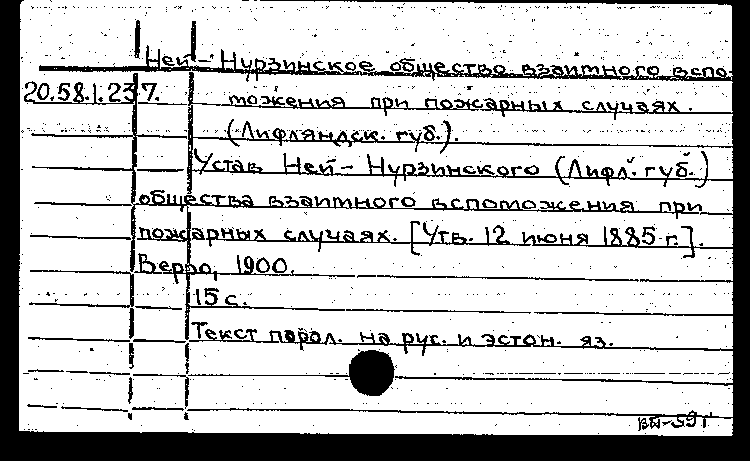 Ней-Нурзинское общество взаимного вспо-
20.58.1.237. можения при пожарных случаях.
(Лифляндск. губ.).
Устав Ней-Нурзинского (Лифл. губ.)
общества взаимного вспоможения при
пожарных случаях. [Утв. 12 июня 1885 г.].
Верро, 1900.
15 с.
Текст парал. на рус. и эстон. яз.